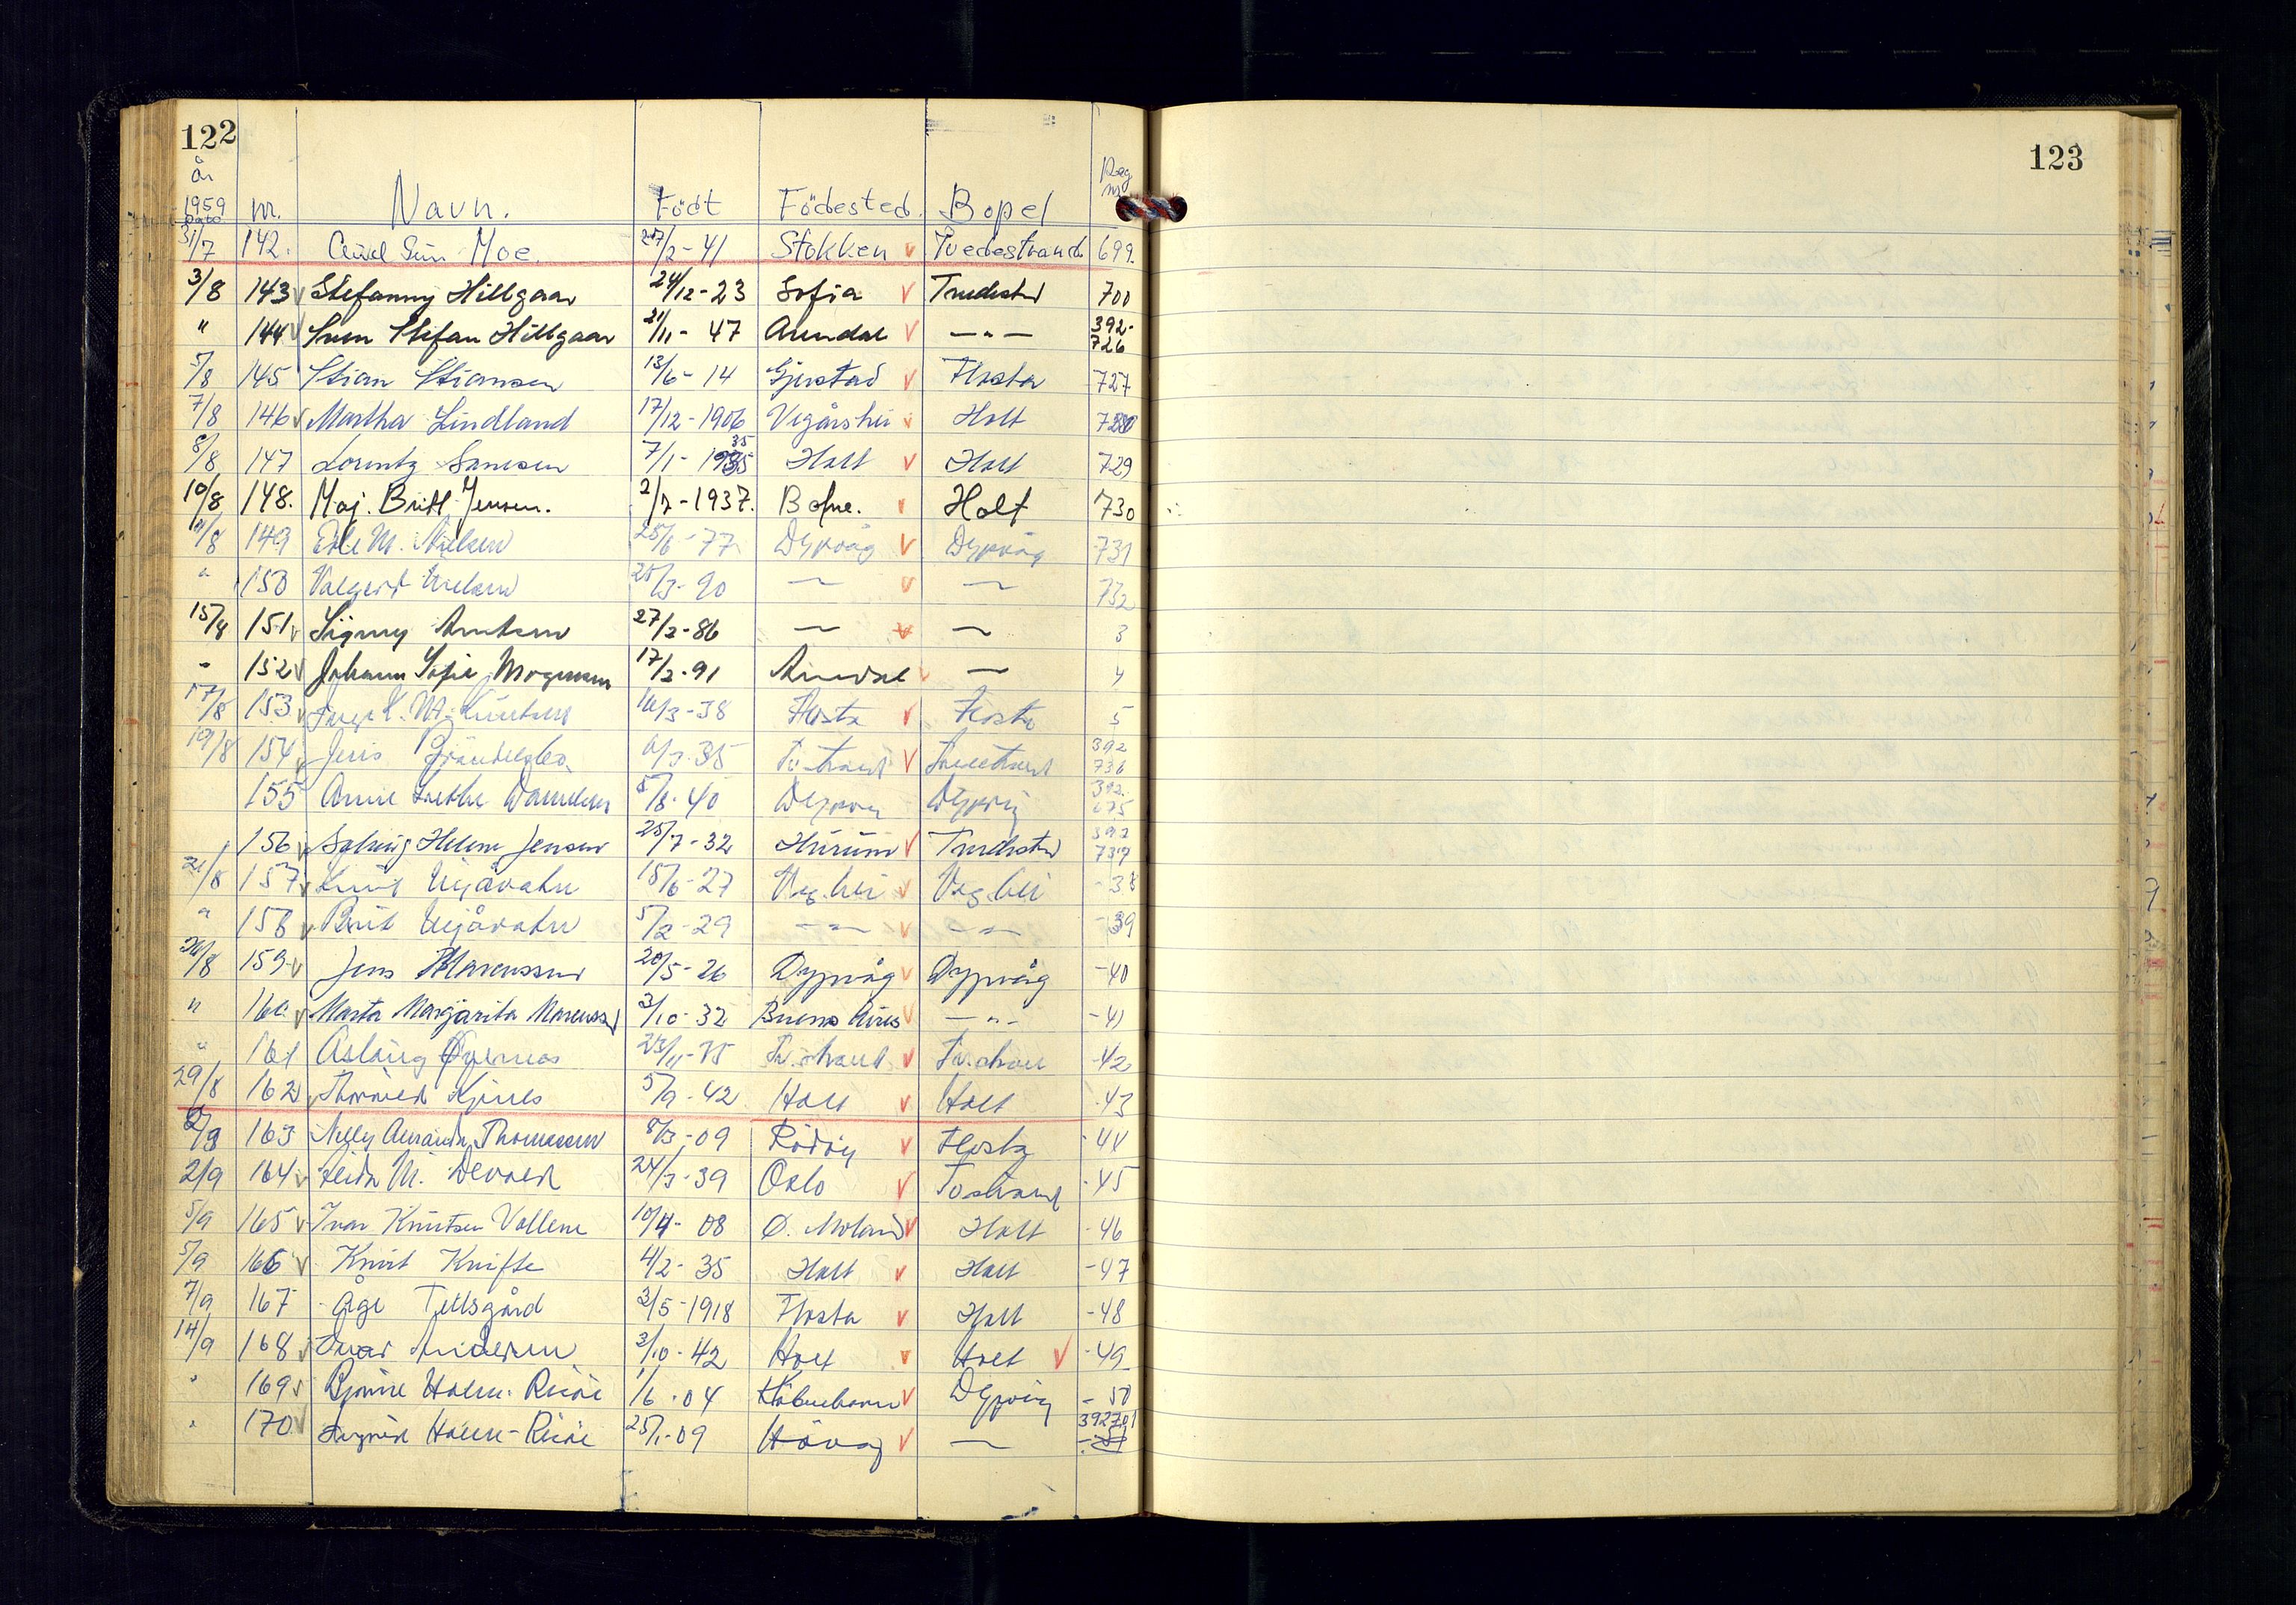 122
år 1959 Dato nr. Navn. Födt Födested. Bopel Reg nr
31/7 142. Moe. 27/2-41 Stokken v Tvedestrand 699.
3/8 143 v Stefanny Hillgaar 24/12-23 Sofia v Tvedestrd 700
" 144 v Sven Stefan Hillgaar 21/11-47 Arendal v —"— 392-726
5/8 145 Stian Stiansen 13/6-14 Gjerstad v Flosta 727
7/8 146 v Martha Lindland 17/12-1906 Vegårshei v Holt 728
8/8 147 Lorentz 7/1-1935 35 Holt v Holt 729
10/8 148. Maj. Britt Jensen. 2/7-1937. v Holt 730
11/8 149 Edle M. Nielsen 25/6-77 Dypvåg v Dypvåg 731
" 150 Valgert Nielsen 25/3-90 — v — 732
15/8 151 v Signy 27/2-86 — v — 3
" 152 v Johanne Sofie Mogensen 17/2-91 Arendal v — 4
17/8 153 v 16/3-38 Flosta v Flosta 5
19/8 154 v 6/3-35 v 392 736
155 Anne Danielsen 5/8-40 Dypvåg Dypvåg 392- 675
156 v Solveig Helene Jensen 25/7-32 Hurum v Tvedestrd 392 737
21/8 157 v Knut 15/6-27 Veg.hei v Veg.hei -38
" 158 v Berit 5/2-29 —"— v —"— -39
26/8 159 v Jens Marcussen 20/5-26 Dypvåg v Dypvåg -40
" 160 v Marta Margarita Marcussen 3/10-32 Buenos Aires v —"— -41
" 161 Aslaug 23/11-75 Tv.strand v Tv.strand -42
29/8 162 v 5/9-42 Holt v Holt -43
2/9 163 Nelly Amanda Thomassen 8/3-09 v Flosta -44
2/9 164 v M. Devold 24/3-39 Oslo v Tvstrand -45
5/9 165 v Ivar Knutsen Vollene 10/4-08 Ø. Moland v Holt -46
5/9 166 v Knut Knifte 4/2-35 Holt v Holt -47
7/9 167 Åge Tellsgård 3/5-1918 Flosta v Holt -48
14/9 168 v Andersen 3/10-42 Holt v Holt v -49
" 169 v Holm-Risöe 1/6-04 Köbenhavn v Dypvåg -50
" 170 v Ingrid Holm-Risöe 25/1-09 Hövåg v — 392701 -51
123